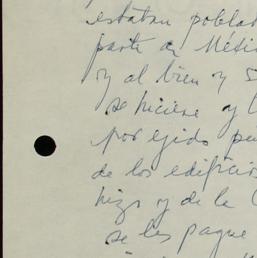 estaban poblad
parte de Méxi
y al bien y s
se hiciere y l
por ejido pe
de los edificios
hizo y de la
se les pague